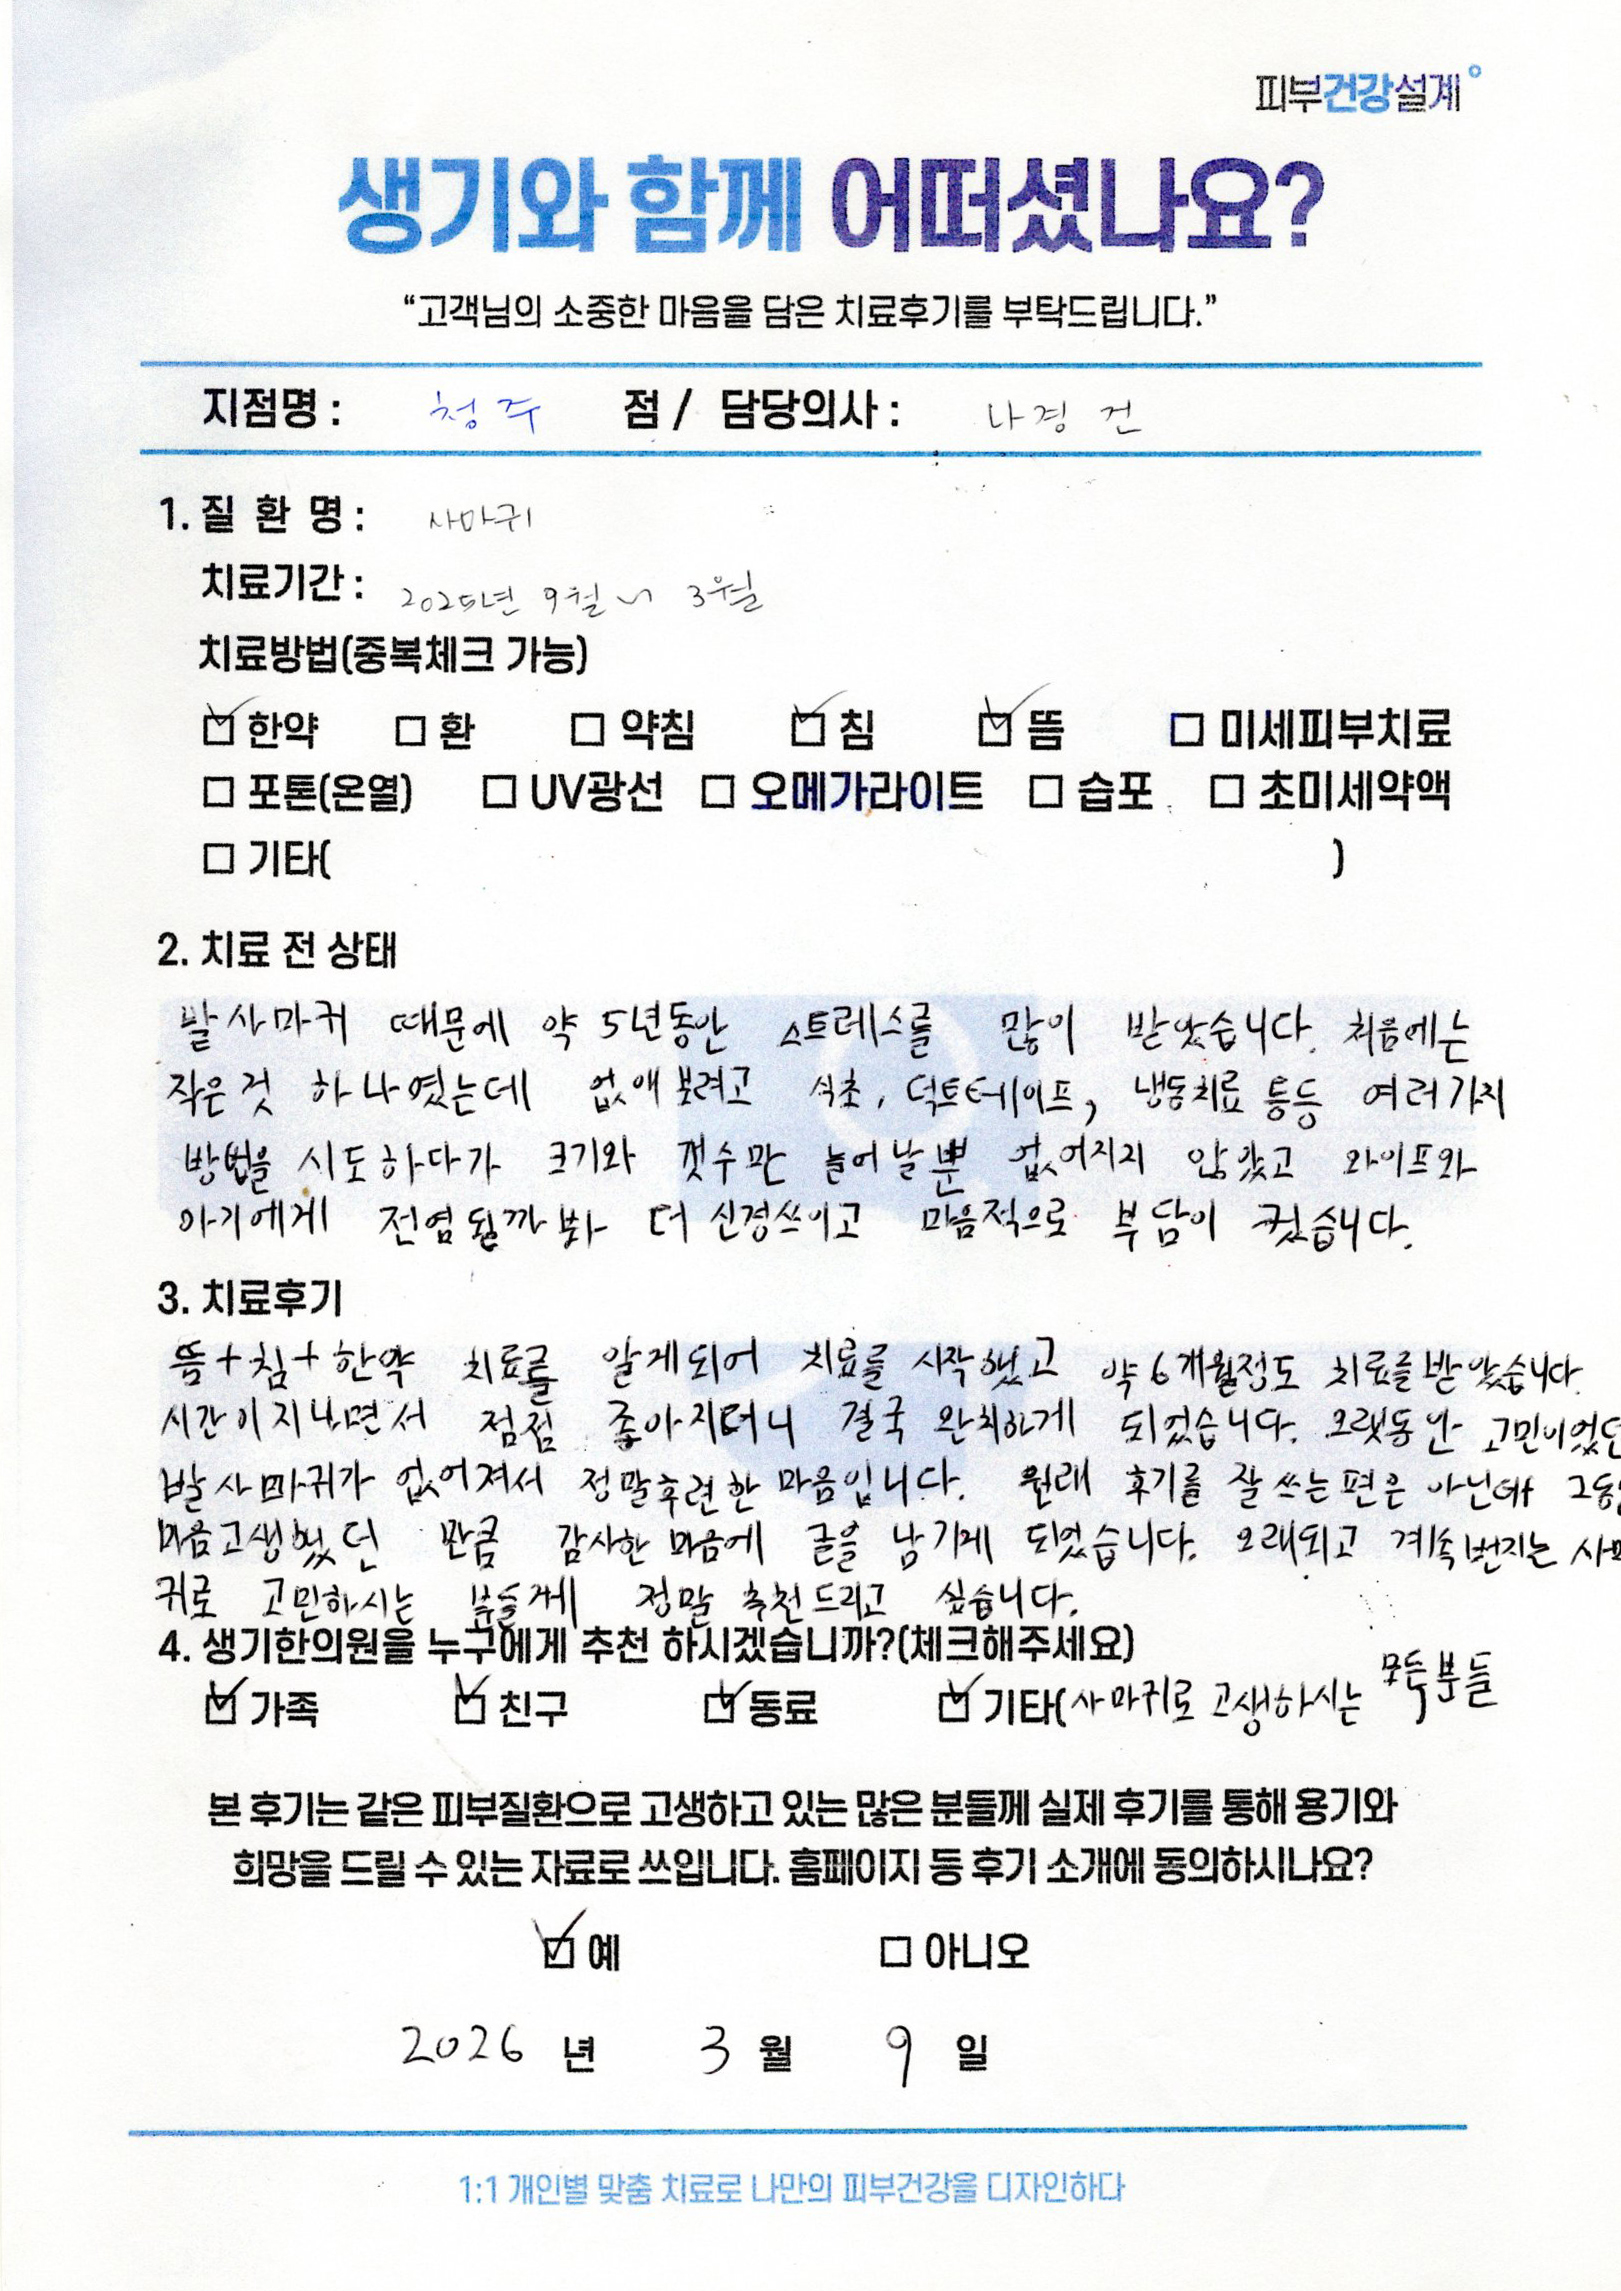 피부건강설계
생기와 함께 어떠셨나요?
“고객님의 소중한 마음을 담은 치료후기를 부탁드립니다.”
지점명 : 청주 점 / 담당의사 : 나경건
1. 질 환 명 : 사마귀
치료기간 : 2025년 9월 ~ 3월
치료방법(중복체크 가능)
☑ 한약 □ 환 □ 약침 ☑ 침 ☑ 뜸 □ 미세피부치료
□ 포톤(온열) □ UV광선 □ 오메가라이트 □ 습포 □ 초미세약액
□ 기타( )
2. 치료 전 상태
발사마귀 때문에 약 5년동안 스트레스를 많이 받았습니다. 처음에는
작은것 하나였는데 없애보려고 식초, 덕트테이프, 냉동치료 등등 여러가지
방법을 시도하다가 크기와 갯수만 늘어날뿐 없어지지 않았고 와이프와
아기에게 전염될까봐 더 신경쓰이고 마음적으로 부담이 컸습니다.
3. 치료후기
뜸+침+한약 치료를 알게되어 치료를 시작했고 약 6개월정도 치료를 받았습니다.
시간이지나면서 점점 좋아지더니 결국 완치하게 되었습니다. 오랫동안 고민이었던
발사마귀가 없어져서 정말후련한 마음입니다. 원래 후기를 잘 쓰는편은 아닌데 그동안
마음고생했던 만큼 감사한 마음에 글을 남기게 되었습니다. 오래되고 계속번지는 사마
귀로 고민하시는 분들께 정말 추천드리고 싶습니다.
4. 생기한의원을 누구에게 추천 하시겠습니까?(체크해주세요)
☑ 가족 ☑ 친구 ☑ 동료 ☑ 기타(사마귀로 고생하시는 모든분들
본 후기는 같은 피부질환으로 고생하고 있는 많은 분들께 실제 후기를 통해 용기와
희망을 드릴 수 있는 자료로 쓰입니다. 홈페이지 등 후기 소개에 동의하시나요?
☑ 예 □ 아니오
2026 년 3 월 9 일
1:1 개인별 맞춤 치료로 나만의 피부건강을 디자인하다